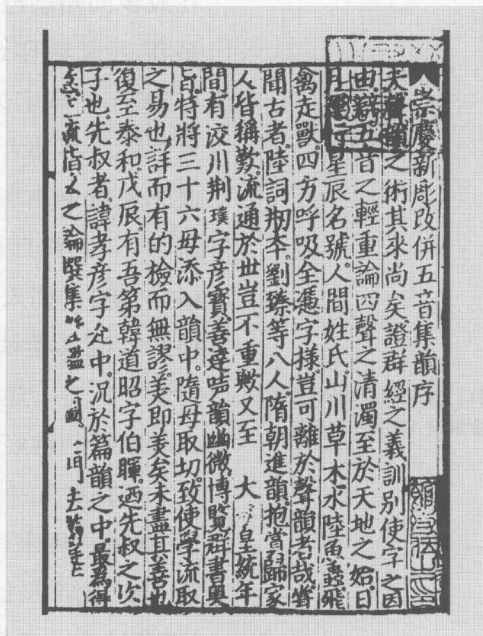 崇慶新彫改併五音集韻序
夫聲韻之術其來尚矣證群經之義訓別使字之因
由辯五音之輕重論四聲之清濁至於天地之始日
月星辰名號人間姓氏山川草木水陸魚蟲飛
禽走獸四方呼吸全憑字樣豈可離於聲韻者哉嘗
聞古者陸詞刱本劉臻等八人隋朝進韻抱賞歸家
人皆稱歎流通於世豈不重歟又至 大 皇統年
間有洨川荆璞字彥寶善達聲韻幽微博覽群書奧
旨特將三十六母添入韻中隨母取切致使學流取
之易也詳而有的檢而無謬美即美矣未盡其善也
復至泰和戊辰有吾弟韓道昭字伯暉迺先叔之次
子也先叔者諱孝彥字允中況於篇韻之中最為得
流 之論 集